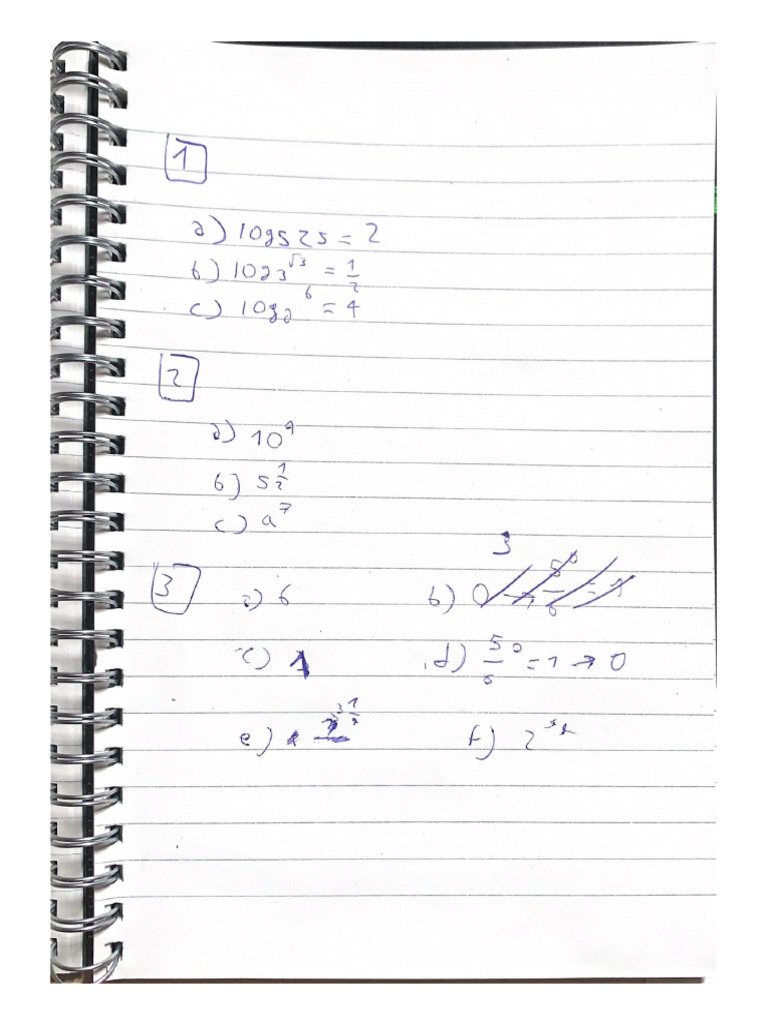 1
a) log₅25 = 2
b) log₃√3 = 1/2
c) log₂6 = 4
2
a) 10⁴
b) 5^1/2
c) a⁷
3
3
a) 6 b)
c) 1 d) 5/6⁰ = 1 → 0
e) f) 2